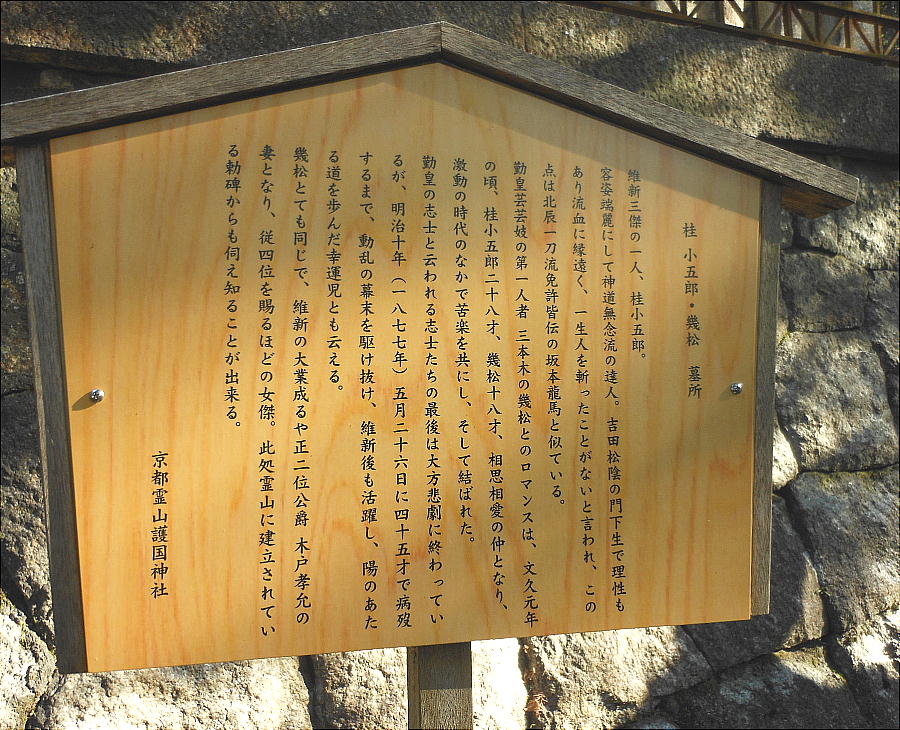 桂 小五郎・幾松 墓所
維新三傑の一人、桂小五郎。
容姿端麗にして神道無念流の達人。吉田松陰の門下生で理性も
あり流血に縁遠く、一生人を斬ったことがないと言われ、この
点は北辰一刀流免許皆伝の坂本龍馬と似ている。
勤皇芸芸妓の第一人者 三本木の幾松とのロマンスは、文久元年
の頃、桂小五郎二十八才、幾松十八才、相思相愛の仲となり、
激動の時代のなかで苦楽を共にし、そして結ばれた。
勤皇の志士と云われる志士たちの最後は大方悲劇に終わってい
るが、明治十年（一八七七年）五月二十六日に四十五才で病歿
するまで、動乱の幕末を駆け抜け、維新後も活躍し、陽のあた
る道を歩んだ幸運児とも云える。
幾松とても同じで、維新の大業成るや正二位公爵 木戸孝允の
妻となり、従四位を賜るほどの女傑。此処霊山に建立されてい
る勅碑からも伺え知ることが出来る。
京都霊山護国神社